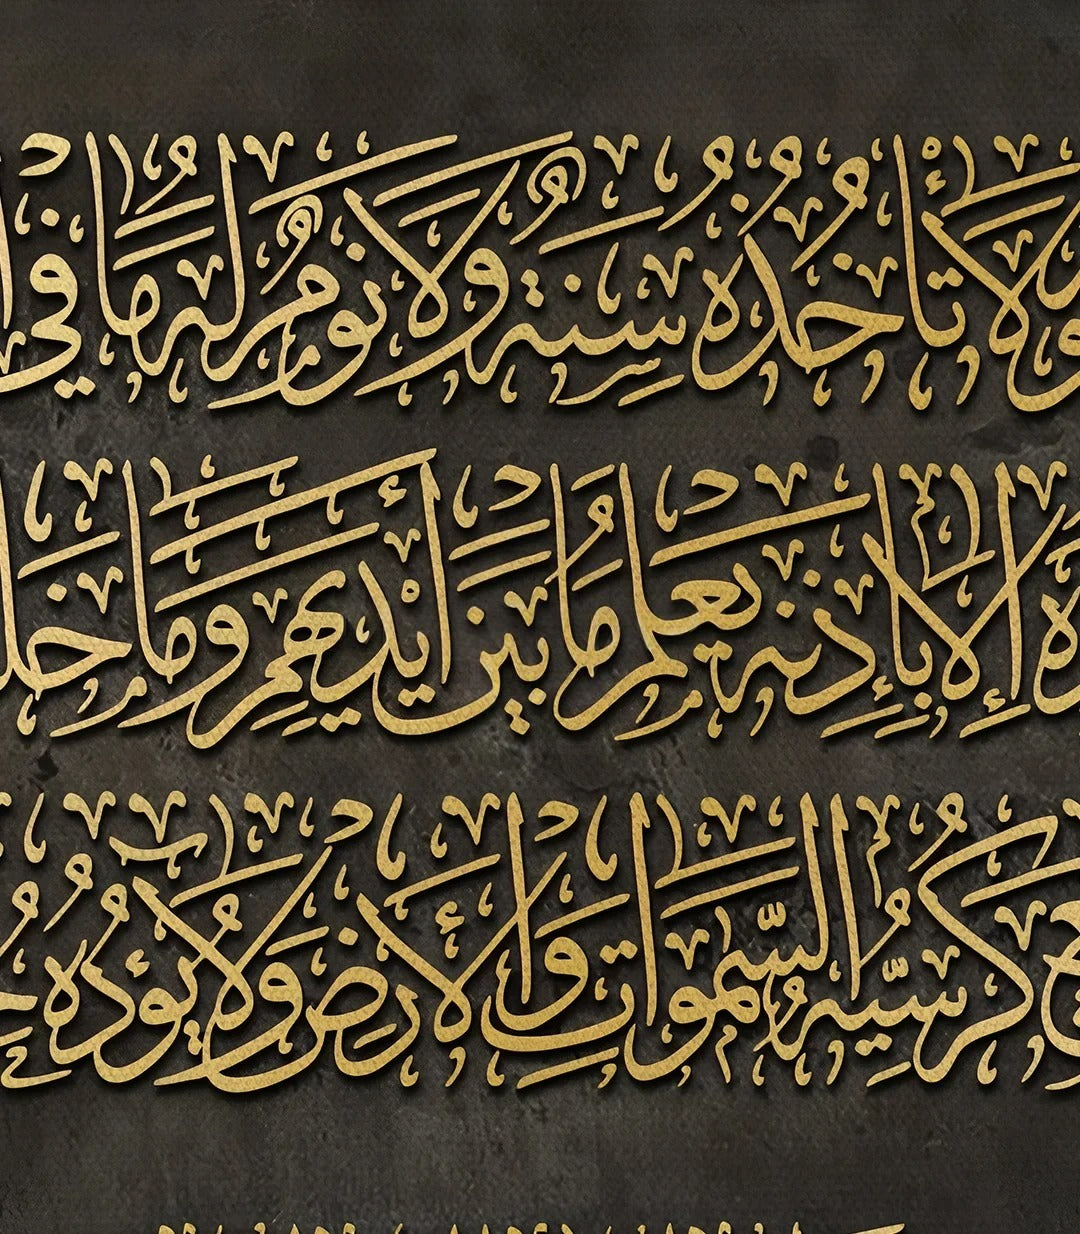 لَا تَأْخُذُهُ سِنَةٌ وَلَا نَوْمٌ لَهُ مَا فِي
إِلَّا بِإِذْنِهِ يَعْلَمُ مَا بَيْنَ أَيْدِيهِمْ وَمَا
كُرْسِيُّهُ السَّمٰوَاتِ وَالْأَرْضَ وَلَا يَؤُدُهُ